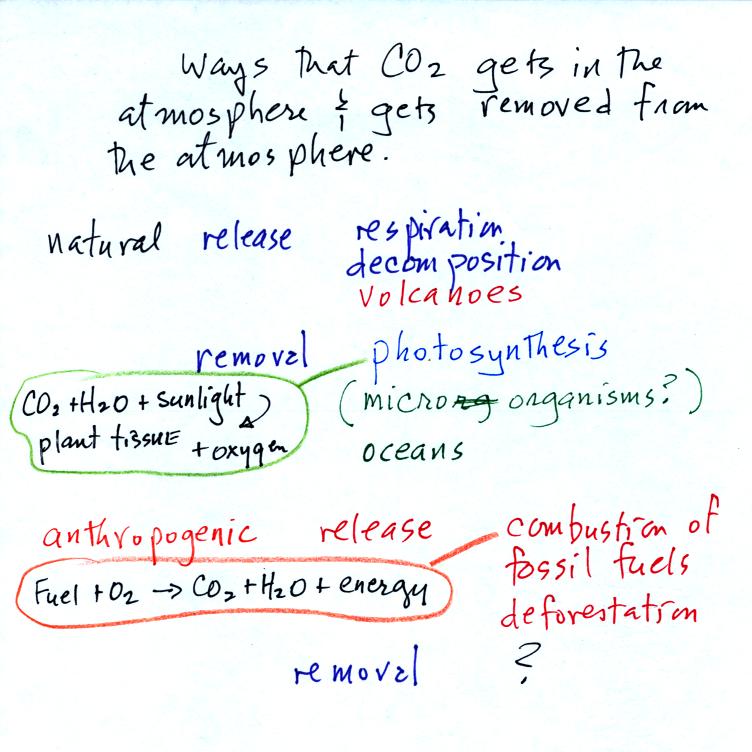 Ways that CO2 gets in the
atmosphere & gets removed from
the atmosphere.
natural release respiration
decomposition
volcanoes
removal photosynthesis
(micro organisms?)
oceans
CO2 + H2O + sunlight
plant tissue + oxygen
anthropogenic release combustion of
fossil fuels
deforestation
Fuel + O2 → CO2 + H2O + energy
removal ?